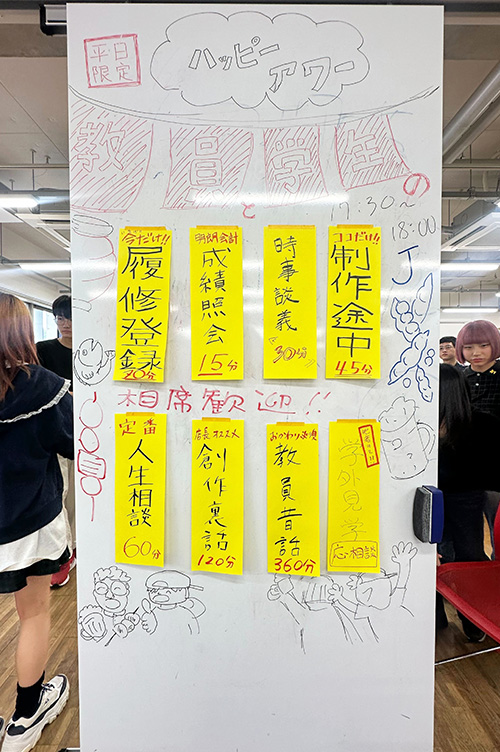 平日
限定
ハッピー
アワー
教員学生の
と
17:30～
18:00
今だけ!!
履修登録
20分
明朗会計
成績照会
15分
時事談義
30分
ココだけ!!
制作途中
45分
相席歓迎!!
定番
人生相談
60分
店長オススメ
創作裏話
120分
おかわり必須
教員昔話
360分
学外見学
応相談